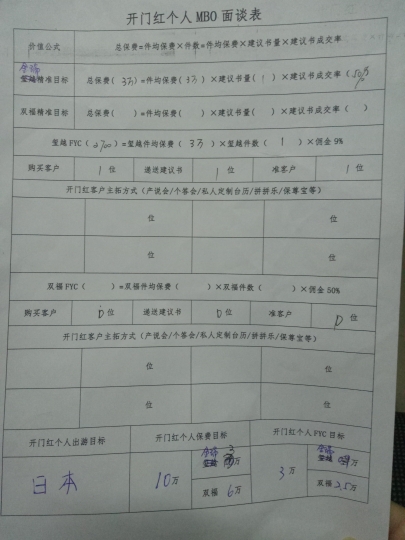 开门红个人 MBO 面谈表
价值公式 总保费=件均保费×件数=件均保费×建议书量×建议书成交率
精准目标 总保费( 3万 )=件均保费( 3万 )×建议书量( 1 )×建议书成交率( 50% )
双福精准目标 总保费( )=件均保费( )×建议书量( )×建议书成交率( )
玺越 FYC( 2700 )=玺越件均保费( 3万 )×玺越件数( 1 )×佣金 9%
购买客户 1 位 递送建议书 1 位 准客户 1 位
开门红客户主拓方式(产说会/个答会/私人定制台历/拼拼乐/保尊宝等)
位 位
位 位
双福 FYC( )=双福件均保费( )×双福件数( )×佣金 50%
购买客户 0 位 递送建议书 0 位 准客户 0 位
开门红客户主拓方式(产说会/个答会/私人定制台历/拼拼乐/保尊宝等)
位 位
位 位
开门红个人出游目标 开门红个人保费目标 开门红个人 FYC 目标
日本 10万 3万 3万 万
双福 6万 双福 2.5万